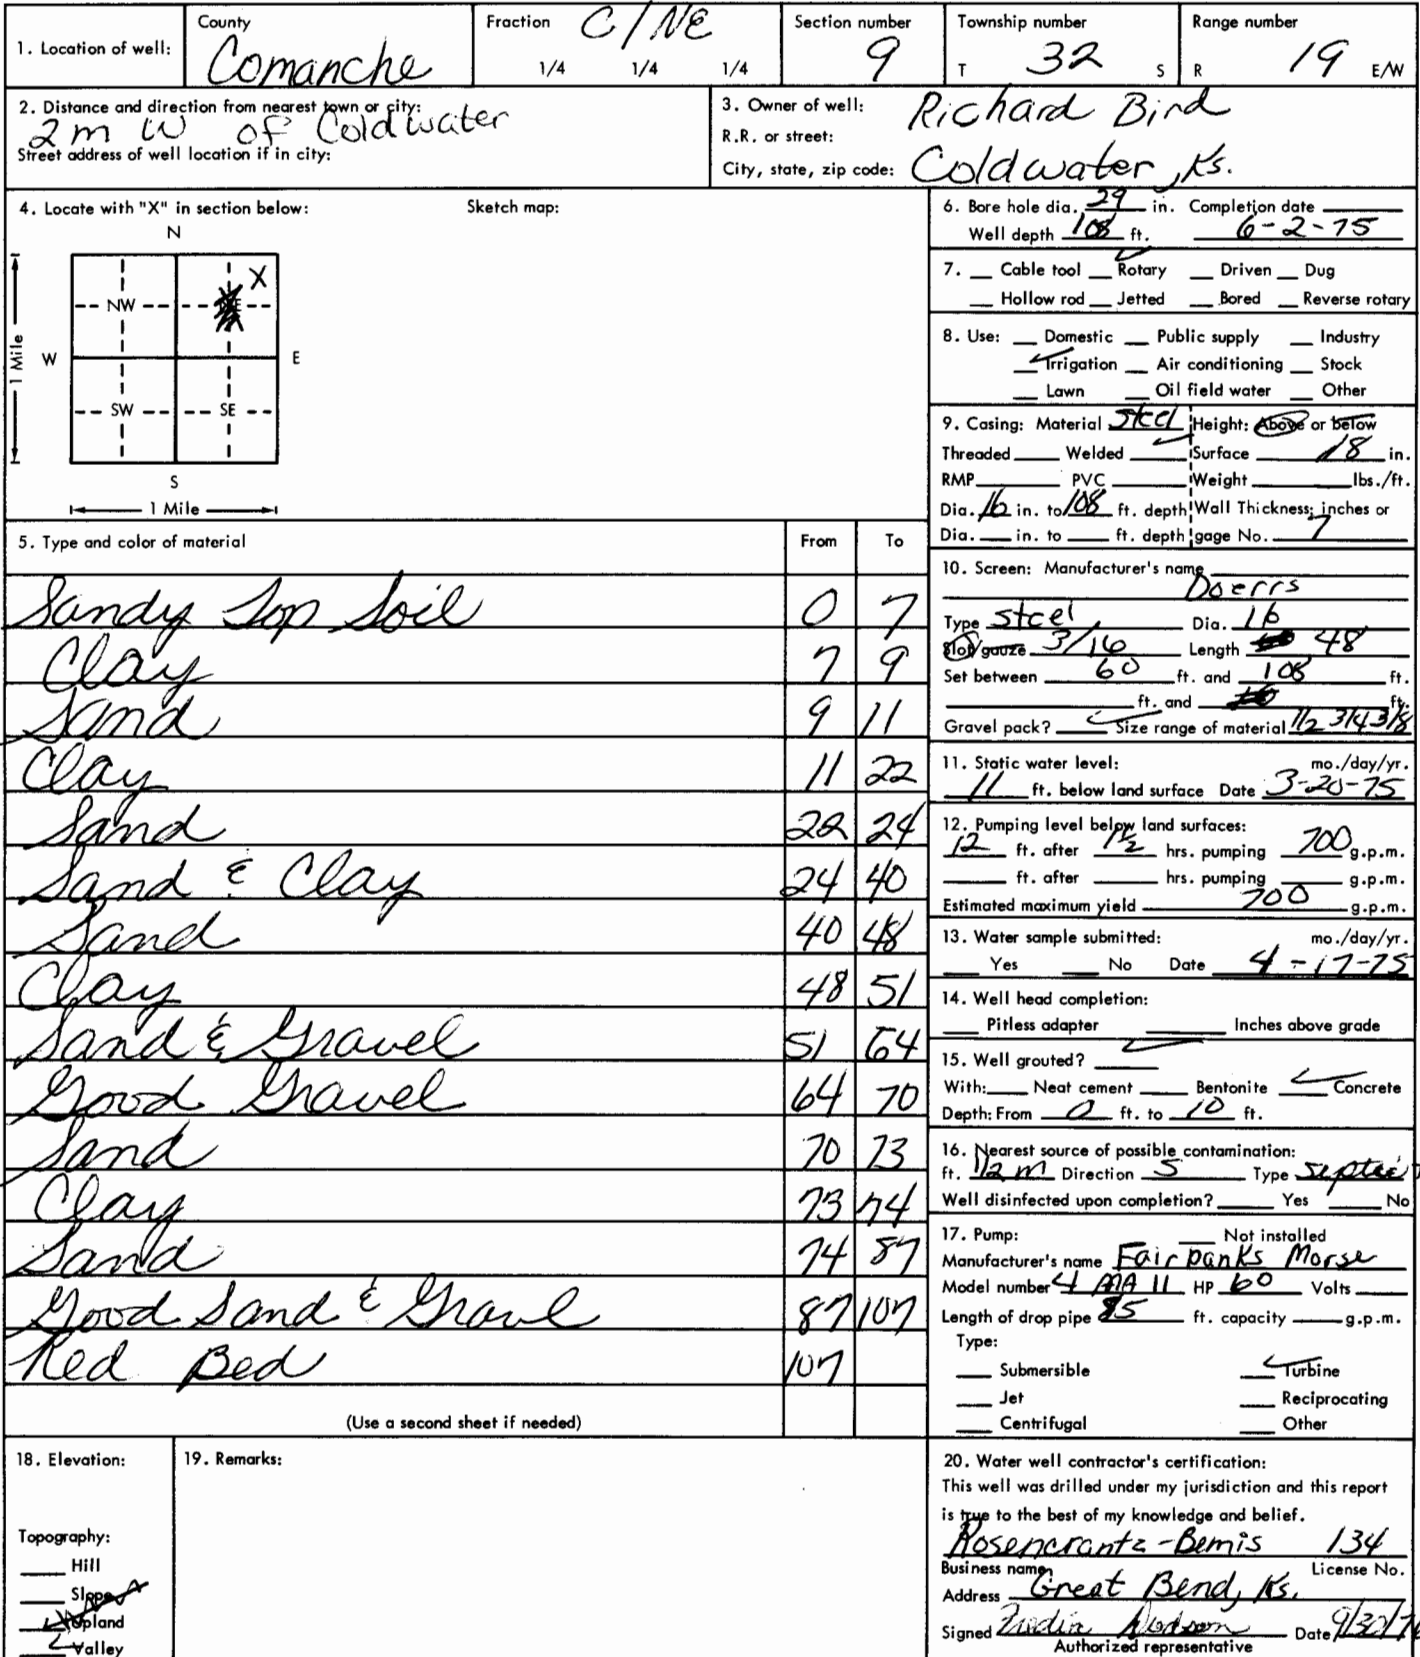 1. Location of well: County Comanche Fraction C/NE 1/4 1/4 1/4 Section number 9 Township number T 32 S Range number R 19 E/W
2. Distance and direction from nearest town or city:
2 m W of Coldwater
Street address of well location if in city:
3. Owner of well: Richard Bird
R.R. or street:
City, state, zip code: Coldwater, Ks.
4. Locate with "X" in section below: Sketch map:
N
X
NW
W E
1 Mile
SW SE
S
1 Mile
5. Type and color of material From To
Sandy Top Soil 0 7
Clay 7 9
Sand 9 11
Clay 11 22
Sand 22 24
Sand & Clay 24 40
Sand 40 48
Clay 48 51
Sand & Gravel 51 64
Good Gravel 64 70
Sand 70 73
Clay 73 74
Sand 74 87
Good Sand & Gravl 87 107
Red Bed 107
(Use a second sheet if needed)
6. Bore hole dia. 29 in. Completion date
Well depth 108 ft. 6-2-75
7. Cable tool ✓ Rotary Driven Dug
Hollow rod Jetted Bored Reverse rotary
8. Use: Domestic Public supply Industry
✓ Irrigation Air conditioning Stock
Lawn Oil field water Other
9. Casing: Material Steel Height: Above or below
Threaded Welded ✓ Surface 18 in.
RMP PVC Weight lbs./ft.
Dia. 16 in. to 108 ft. depth Wall Thickness: inches or
Dia. in. to ft. depth gage No. 7
10. Screen: Manufacturer's name
Doerrs
Type steel Dia. 16
Slot/gauze 3/16 Length 48
Set between 60 ft. and 108 ft.
ft. and ft.
Gravel pack? ✓ Size range of material 1/2 3/4 3/8
11. Static water level: mo./day/yr.
11 ft. below land surface Date 3-20-75
12. Pumping level below land surfaces:
12 ft. after 1 1/2 hrs. pumping 700 g.p.m.
ft. after hrs. pumping g.p.m.
Estimated maximum yield 700 g.p.m.
13. Water sample submitted: mo./day/yr.
Yes No Date 4-17-75
14. Well head completion:
Pitless adapter Inches above grade
15. Well grouted? ✓
With: Neat cement Bentonite ✓ Concrete
Depth: From 0 ft. to 10 ft.
16. Nearest source of possible contamination:
ft. 1/2 m Direction S Type septic
Well disinfected upon completion? Yes No
17. Pump: Not installed
Manufacturer's name Fairbanks Morse
Model number HP 60 Volts
Length of drop pipe 85 ft. capacity g.p.m.
Type:
Submersible ✓ Turbine
Jet Reciprocating
Centrifugal Other
18. Elevation:
Topography:
Hill
Slope
Upland
✓ Valley
19. Remarks:
20. Water well contractor's certification:
This well was drilled under my jurisdiction and this report
is true to the best of my knowledge and belief.
Rosencrantz-Bemis 134
Business name License No.
Address Great Bend, Ks.
Signed Date
Authorized representative